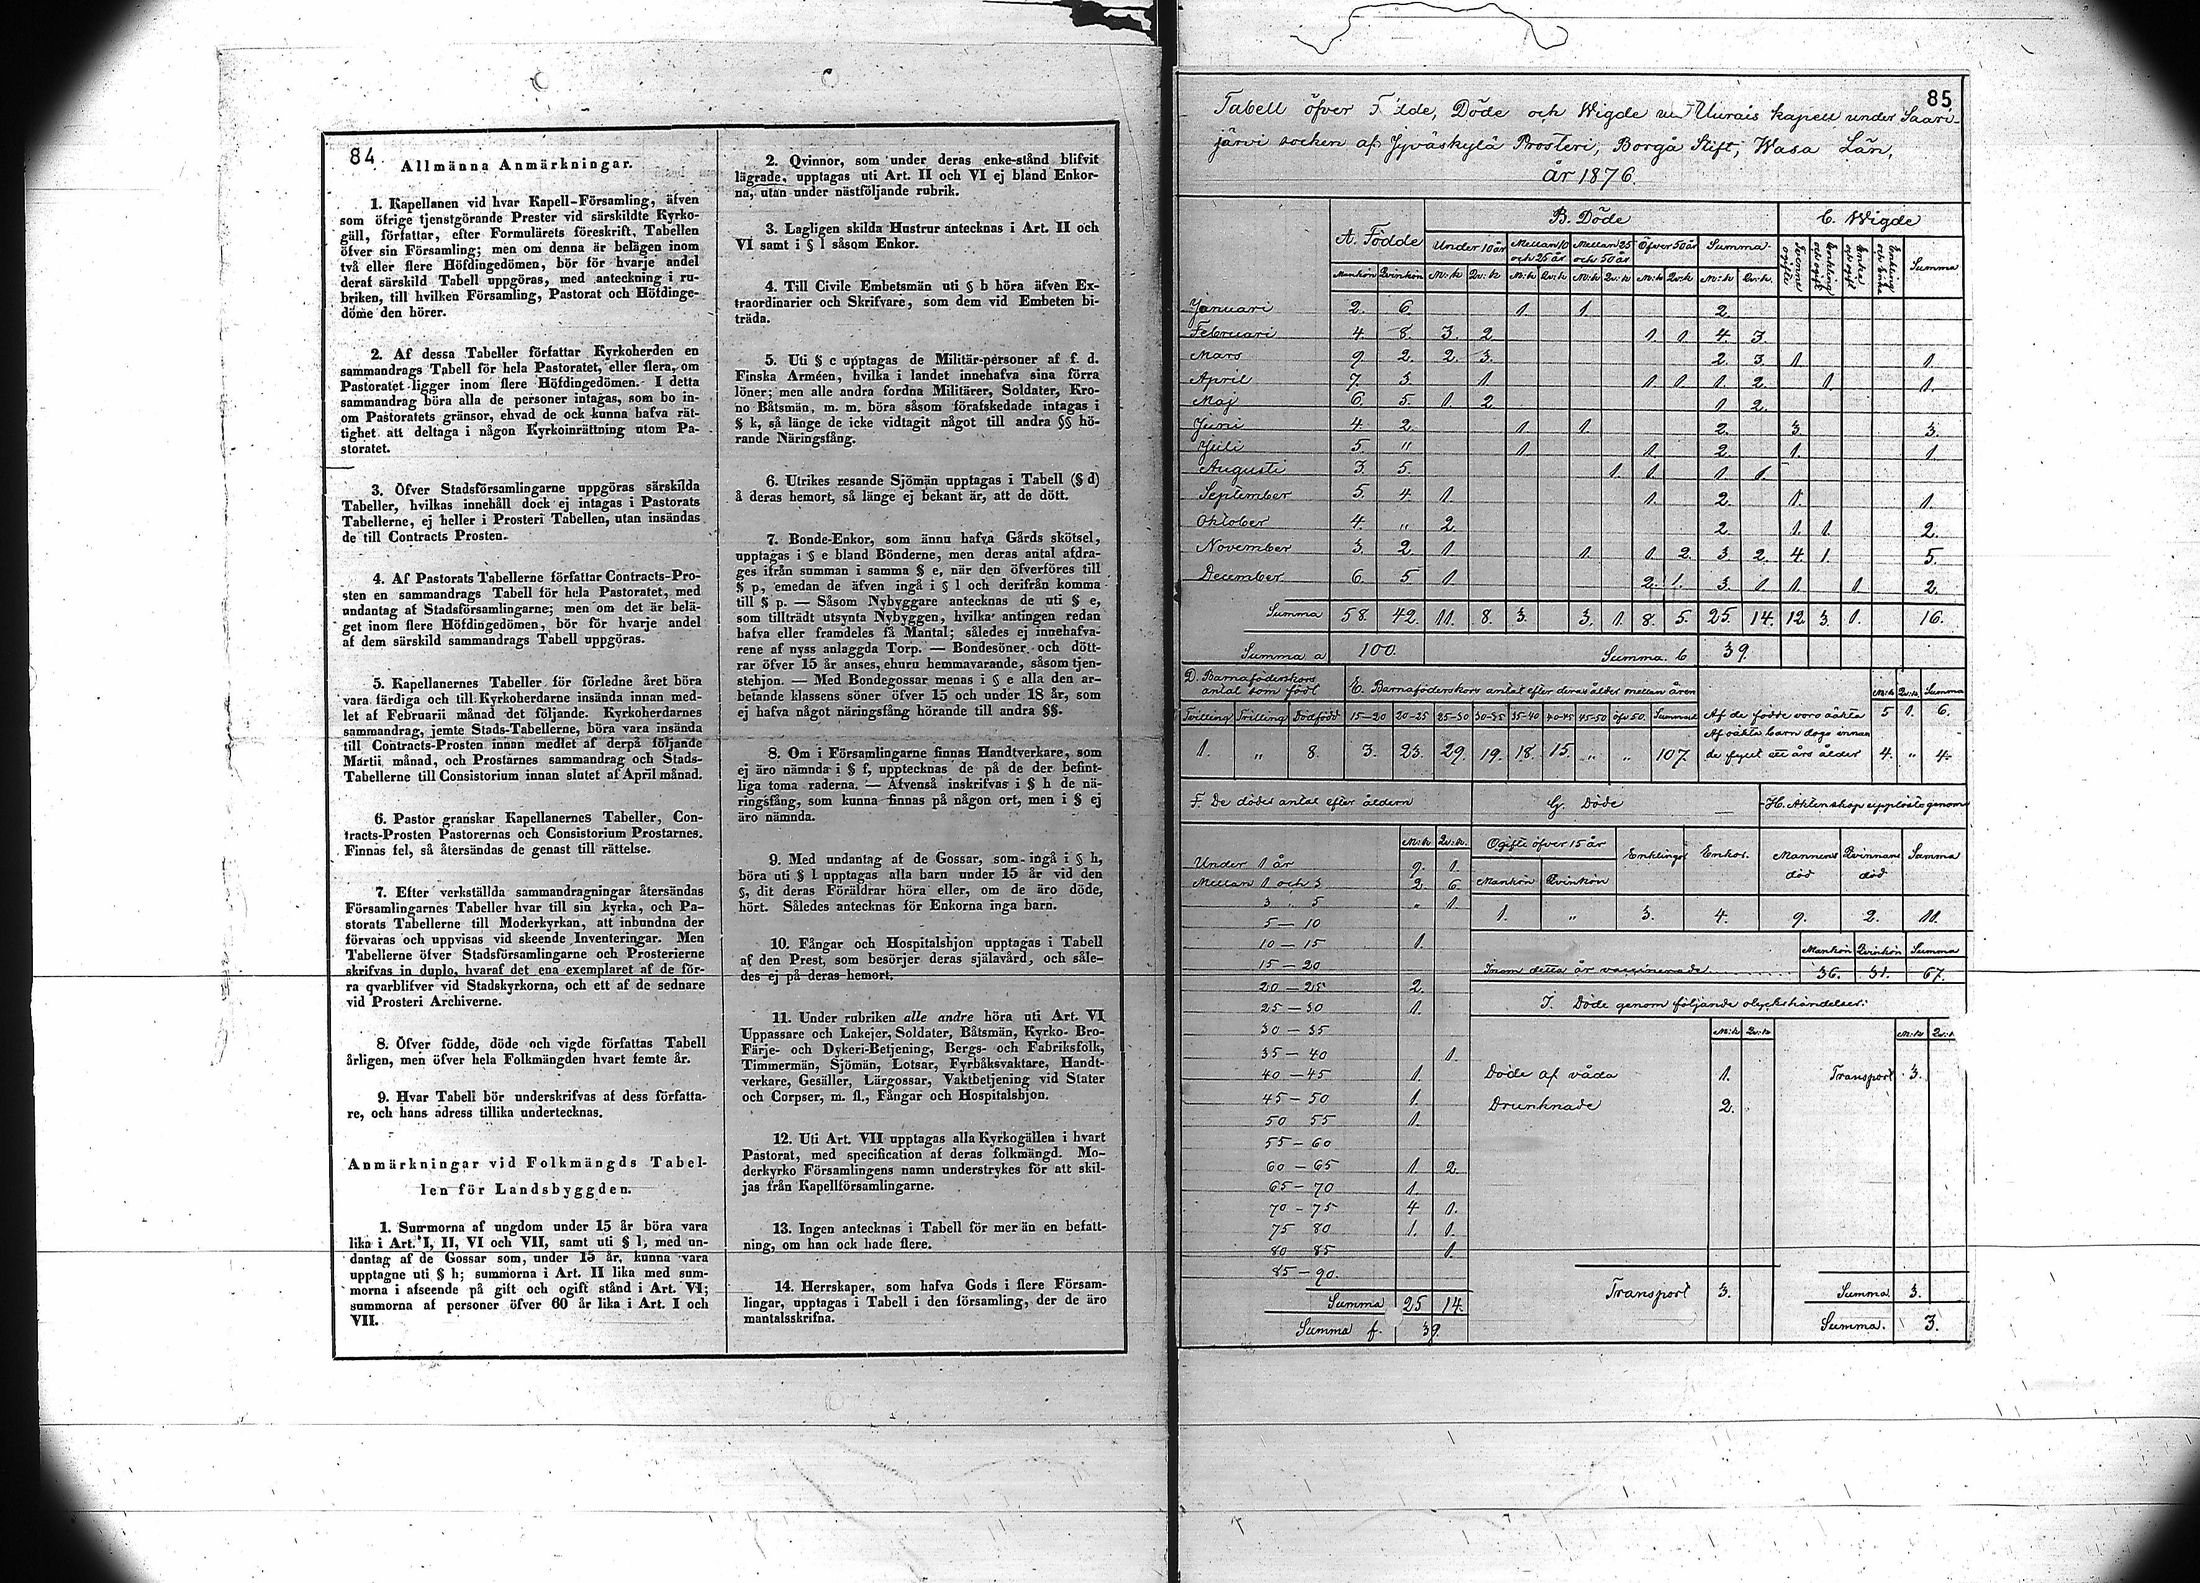 84.
Allmänna Anmärkningar.
1. Kapellanen vid hvar Kapell-Församling, äfven
som öfrige tjenstgörande Prester vid särskildte Kyrko-
gäll, författar, efter Formulärets föreskrift, Tabellen
öfver sin Församling; men om denna är belägen inom
två eller flere Höfdingedömen, bör för hvarje andel
deraf särskild Tabell uppgöras, med anteckning i ru-
briken, till hvilken Församling, Pastorat och Höfdinge-
döme den hörer.
2. Af dessa Tabeller författar Kyrkoherden en
sammandrags Tabell för hela Pastoratet, eller flera, om
Pastoratet ligger inom flere Höfdingedömen. I detta
sammandrag böra alla de personer intagas, som bo in-
om Pastoratets gränsor, ehvad de ock kunna hafva rät-
tighet att deltaga i någon Kyrkoinrättning utom Pa-
storatet.
3. Öfver Stadsförsamlingarne uppgöras särskilda
Tabeller, hvilkas innehåll dock ej intagas i Pastorats
Tabellerne, ej heller i Prosteri Tabellen, utan insändas
de till Contracts Prosten.
4. Af Pastorats Tabellerne författar Contracts-Pro-
sten en sammandrags Tabell för hela Pastoratet, med
undantag af Stadsförsamlingarne; men om det är belä-
get inom flere Höfdingedömen, bör för hvarje andel
af dem särskild sammandrags Tabell uppgöras.
5. Kapellanernes Tabeller för förledne året böra
vara färdiga och till Kyrkoherdarne insända innan med-
let af Februarii månad det följande. Kyrkoherdarnes
sammandrag, jemte Stads-Tabellerne, böra vara insända
till Contracts-Prosten innan medlet af derpå följande
Martii månad, och Prostarnes sammandrag och Stads-
Tabellerne till Consistorium innan slutet af April månad.
6. Pastor granskar Kapellanernes Tabeller, Con-
tracts-Prosten Pastorernas och Consistorium Prostarnes.
Finnas fel, så återsändas de genast till rättelse.
7. Efter verkställda sammandragningar återsändas
Församlingarnes Tabeller hvar till sin kyrka, och Pa-
storats Tabellerne till Moderkyrkan, att inbundna der
förvaras och uppvisas vid skeende Inventeringar. Men
Tabellerne öfver Stadsförsamlingarne och Prosterierne
skrifvas in duplo, hvaraf det ena exemplaret af de för-
ra qvarblifver vid Stadskyrkorna, och ett af de sednare
vid Prosteri Archiverne.
8. Öfver födde, döde och vigde författas Tabell
årligen, men öfver hela Folkmängden hvart femte år.
9. Hvar Tabell bör underskrifvas af dess författa-
re, och hans adress tillika undertecknas.
Anmärkningar vid Folkmängds Tabel-
len för Landsbyggden.
1. Summorna af ungdom under 15 år böra vara
lika i Art. I, II, VI och VII, samt uti § l, med un-
dantag af de Gossar som, under 15 år, kunna vara
upptagne uti § h; summorna i Art. II lika med sum-
morna i afseende på gift och ogift stånd i Art. VI;
summorna af personer öfver 60 år lika i Art. I och
VII.
2. Qvinnor, som under deras enke-stånd blifvit
lägrade, upptagas uti Art. II och VI ej bland Enkor-
na, utan under nästföljande rubrik.
3. Lagligen skilda Hustrur antecknas i Art. II och
VI samt i § l såsom Enkor.
4. Till Civile Embetsmän uti § b höra äfven Ex-
traordinarier och Skrifvare, som dem vid Embeten bi-
träda.
5. Uti § c upptagas de Militär-personer af f. d.
Finska Arméen, hvilka i landet innehafva sina förra
löner; men alle andra fordna Militärer, Soldater, Kro-
no Båtsmän, m. m. böra såsom förafskedade intagas i
§ k, så länge de icke vidtagit något till andra §§ hö-
rande Näringsfång.
6. Utrikes resande Sjömän upptagas i Tabell (§ d)
å deras hemort, så länge ej bekant är, att de dött.
7. Bonde-Enkor, som ännu hafva Gårds skötsel,
upptagas i § e bland Bönderne, men deras antal afdra-
ges ifrån summan i samma § e, när den öfverföres till
§ p, emedan de äfven ingå i § l och derifrån komma
till § p. — Såsom Nybyggare antecknas de uti § e,
som tillträdt utsynta Nybyggen, hvilka antingen redan
hafva eller framdeles få Mantal; således ej innehafva-
rene af nyss anlaggda Torp. — Bondesöner och dött-
rar öfver 15 år anses, ehuru hemmavarande, såsom tjen-
stehjon. — Med Bondegossar menas i § e alla den ar-
betande klassens söner öfver 15 och under 18 år, som
ej hafva något näringsfång hörande till andra §§.
8. Om i Församlingarne finnas Handtverkare, som
ej äro nämnda i § f, upptecknas de på de der befint-
liga toma raderna. — Äfvenså inskrifvas i § h de nä-
ringsfång, som kunna finnas på någon ort, men i § ej
äro nämnda.
9. Med undantag af de Gossar, som ingå i § h,
böra uti § l upptagas alla barn under 15 år vid den
§, dit deras Föräldrar höra eller, om de äro döde,
hört. Således antecknas för Enkorna inga barn.
10. Fångar och Hospitalshjon upptagas i Tabell
af den Prest, som besörjer deras själavård, och såle-
des ej på deras hemort.
11. Under rubriken alle andre höra uti Art. VI
Uppassare och Lakejer, Soldater, Båtsmän, Kyrko- Bro-
Färje- och Dykeri-Betjening, Bergs- och Fabriksfolk,
Timmermän, Sjömän, Lotsar, Fyrbåksvaktare, Handt-
verkare, Gesäller, Lärgossar, Vaktbetjening vid Stater
och Corpser, m. fl., Fångar och Hospitalshjon.
12. Uti Art. VII upptagas alla Kyrkogällen i hvart
Pastorat, med specification af deras folkmängd. Mo-
derkyrko Församlingens namn understrykes för att skil-
jas från Kapellförsamlingarne.
13. Ingen antecknas i Tabell för mer än en befatt-
ning, om han ock hade flere.
14. Herrskaper, som hafva Gods i flere Försam-
lingar, upptagas i Tabell i den församling, der de äro
mantalsskrifna.
85
Tabell öfver Födde, Döde och Wigde uti Uurais kapell under Saari-
järvi socken af Jyväskylä Prosteri, Borgå Stift, Wasa Län,
år 1876.
A. Födde B. Döde C. Wigde
Under 10 år Mellan 10 och 25 år Mellan 25 och 50 år Öfver 50 år Summa Summa
Mankön Qvinkön M:k Qv:k M:k Qv:k M:k Qv:k M:k Qv:k M:k Qv:k
Januari 2. 6 1. 1. 2
Februari 4. 8. 3. 2. 1. 1 4. 3.
Mars 9 2. 2. 3. 2. 3. 1. 1.
April 7. 3. 1. 1. 1. 1. 2. 1. 1.
Maj 6. 5. 1. 2 1. 2.
Juni 4. 2. 1. 1. 2. 3. 3.
Juli 5. " 1. 1. 2. 1. 1.
Augusti 3. 5. 1. 1. 1. 1.
September 5. 4. 1. 1. 2. 1. 1.
Oktober 4. " 2. 2. 1. 1. 2.
November 3. 2. 1. 1. 1. 2. 3. 2. 4 1. 5.
December 6. 5 1. 2. 1. 3. 1. 1. 1. 2.
Summa 58. 42. 11. 8. 3. 3. 1. 8. 5. 25. 14. 12. 3. 1. 16.
Summa a 100. Summa b 39.
D. Barnaföderskors antal som födt
Tvilling Trilling Dödfödd
1. " 8.
E. Barnaföderskors antal efter deras ålder mellan åren
15-20 20-25 25-30 30-35 35-40 40-45 45-50 öfv 50. Summa
3. 23. 29. 19. 18. 15. " " 107.
M:k Qv:k Summa
Af de födde voro oäkta 5 1. 6.
Af oäkta barn dogo innan
de fyllt ett års ålder 4. " 4.
F. De dödes antal efter åldern
M:k Qv:k
Under 1 år 9. 1.
Mellan 1 och 3 2. 6.
3 " 5 " 1.
5 — 10
10 — 15 1.
15 — 20
20 — 25 2.
25 — 30 1.
30 — 35
35 — 40 1.
40 — 45 1.
45 — 50 1.
50 55 1.
55 — 60
60 — 65 1. 2.
65 — 70 1.
70 — 75 4 1.
75 80 1. 1.
80 85 1.
85 — 90.
Summa 25 14.
Summa f. 39.
G. Döde
Ogifte öfver 15 år Enklingar Enkor.
Mankön Qvinkön
1. " 3. 4.
H. Äktenskap upplösts genom
Mannens död Qvinnans död Summa
9. 2. 11.
Mankön Qvinkön Summa
Inom detta år vaccinerade 36. 31. 67.
I. Döde genom följande olyckshändelser:
M:k Qv:k M:k Qv:k
Döde af våda 1. Transport 3.
Drunknade 2.
Transport 3. Summa 3.
Summa. 3.